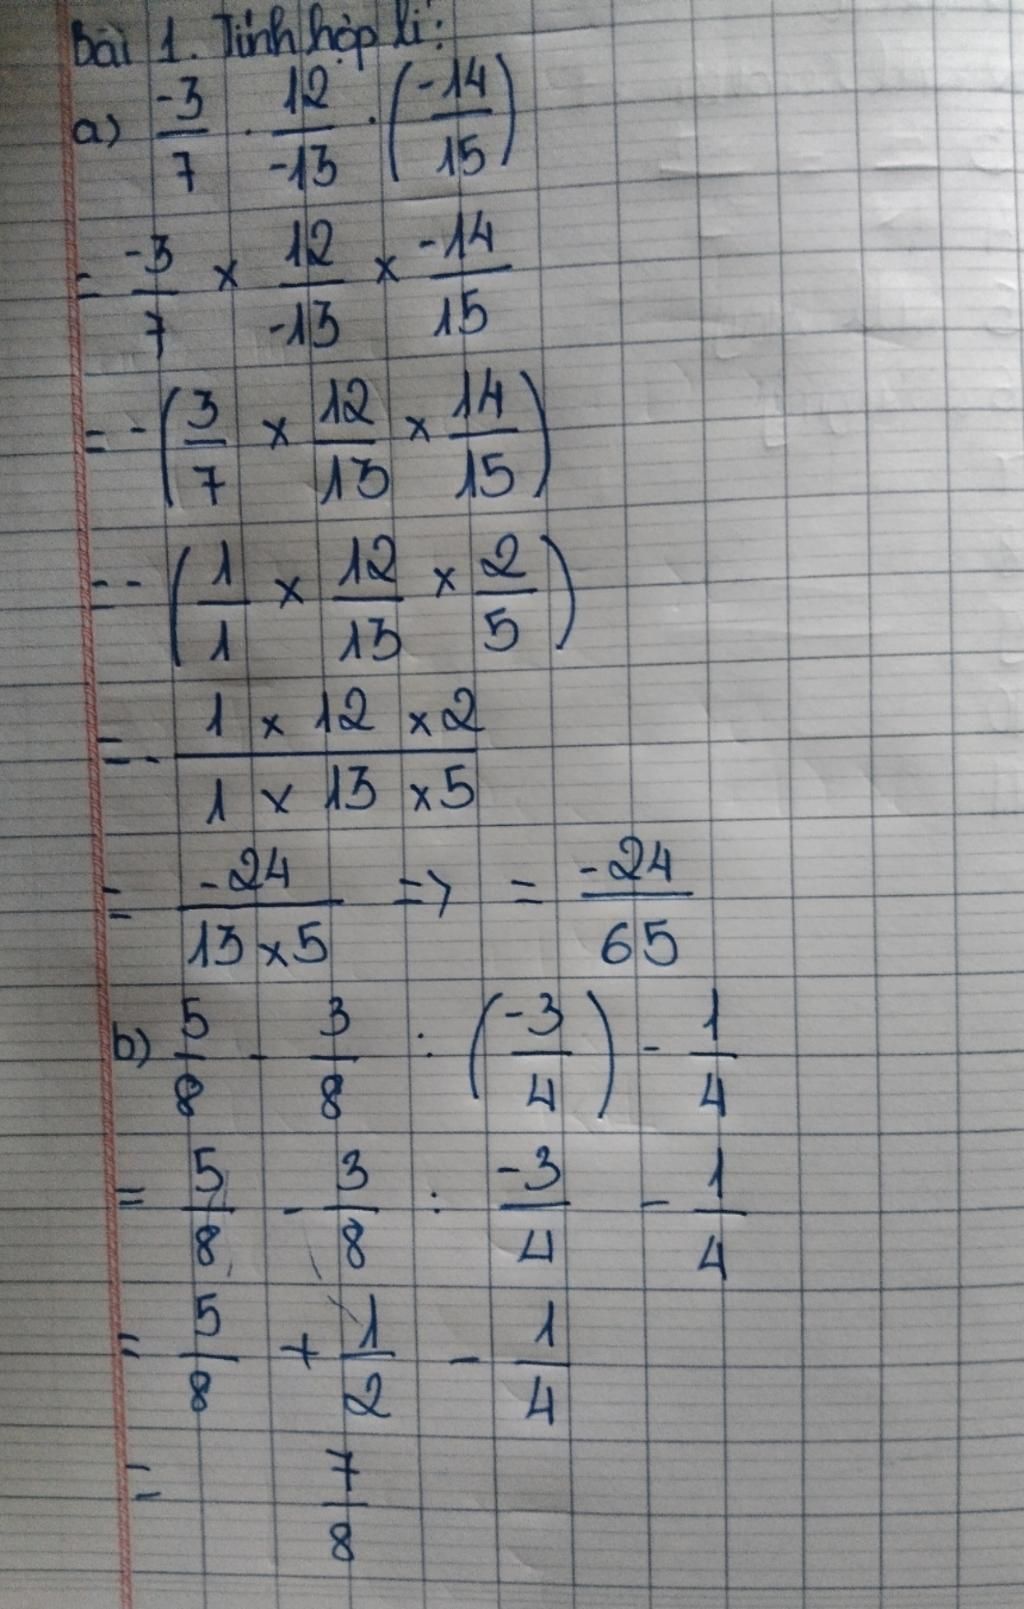 Bài 1. Tính hợp lí:
a) -3/7 . 12/-13 . (-14/15)
= -3/7 × 12/-13 × -14/15
= -(3/7 × 12/13 × 14/15)
= -(1/1 × 12/13 × 2/5)
= - 1 × 12 × 2 / 1 × 13 × 5
= -24 / 13 × 5 => = -24/65
b) 5/8 - 3/8 : (-3/4) - 1/4
= 5/8 - 3/8 : -3/4 - 1/4
= 5/8 + 1/2 - 1/4
= 7/8